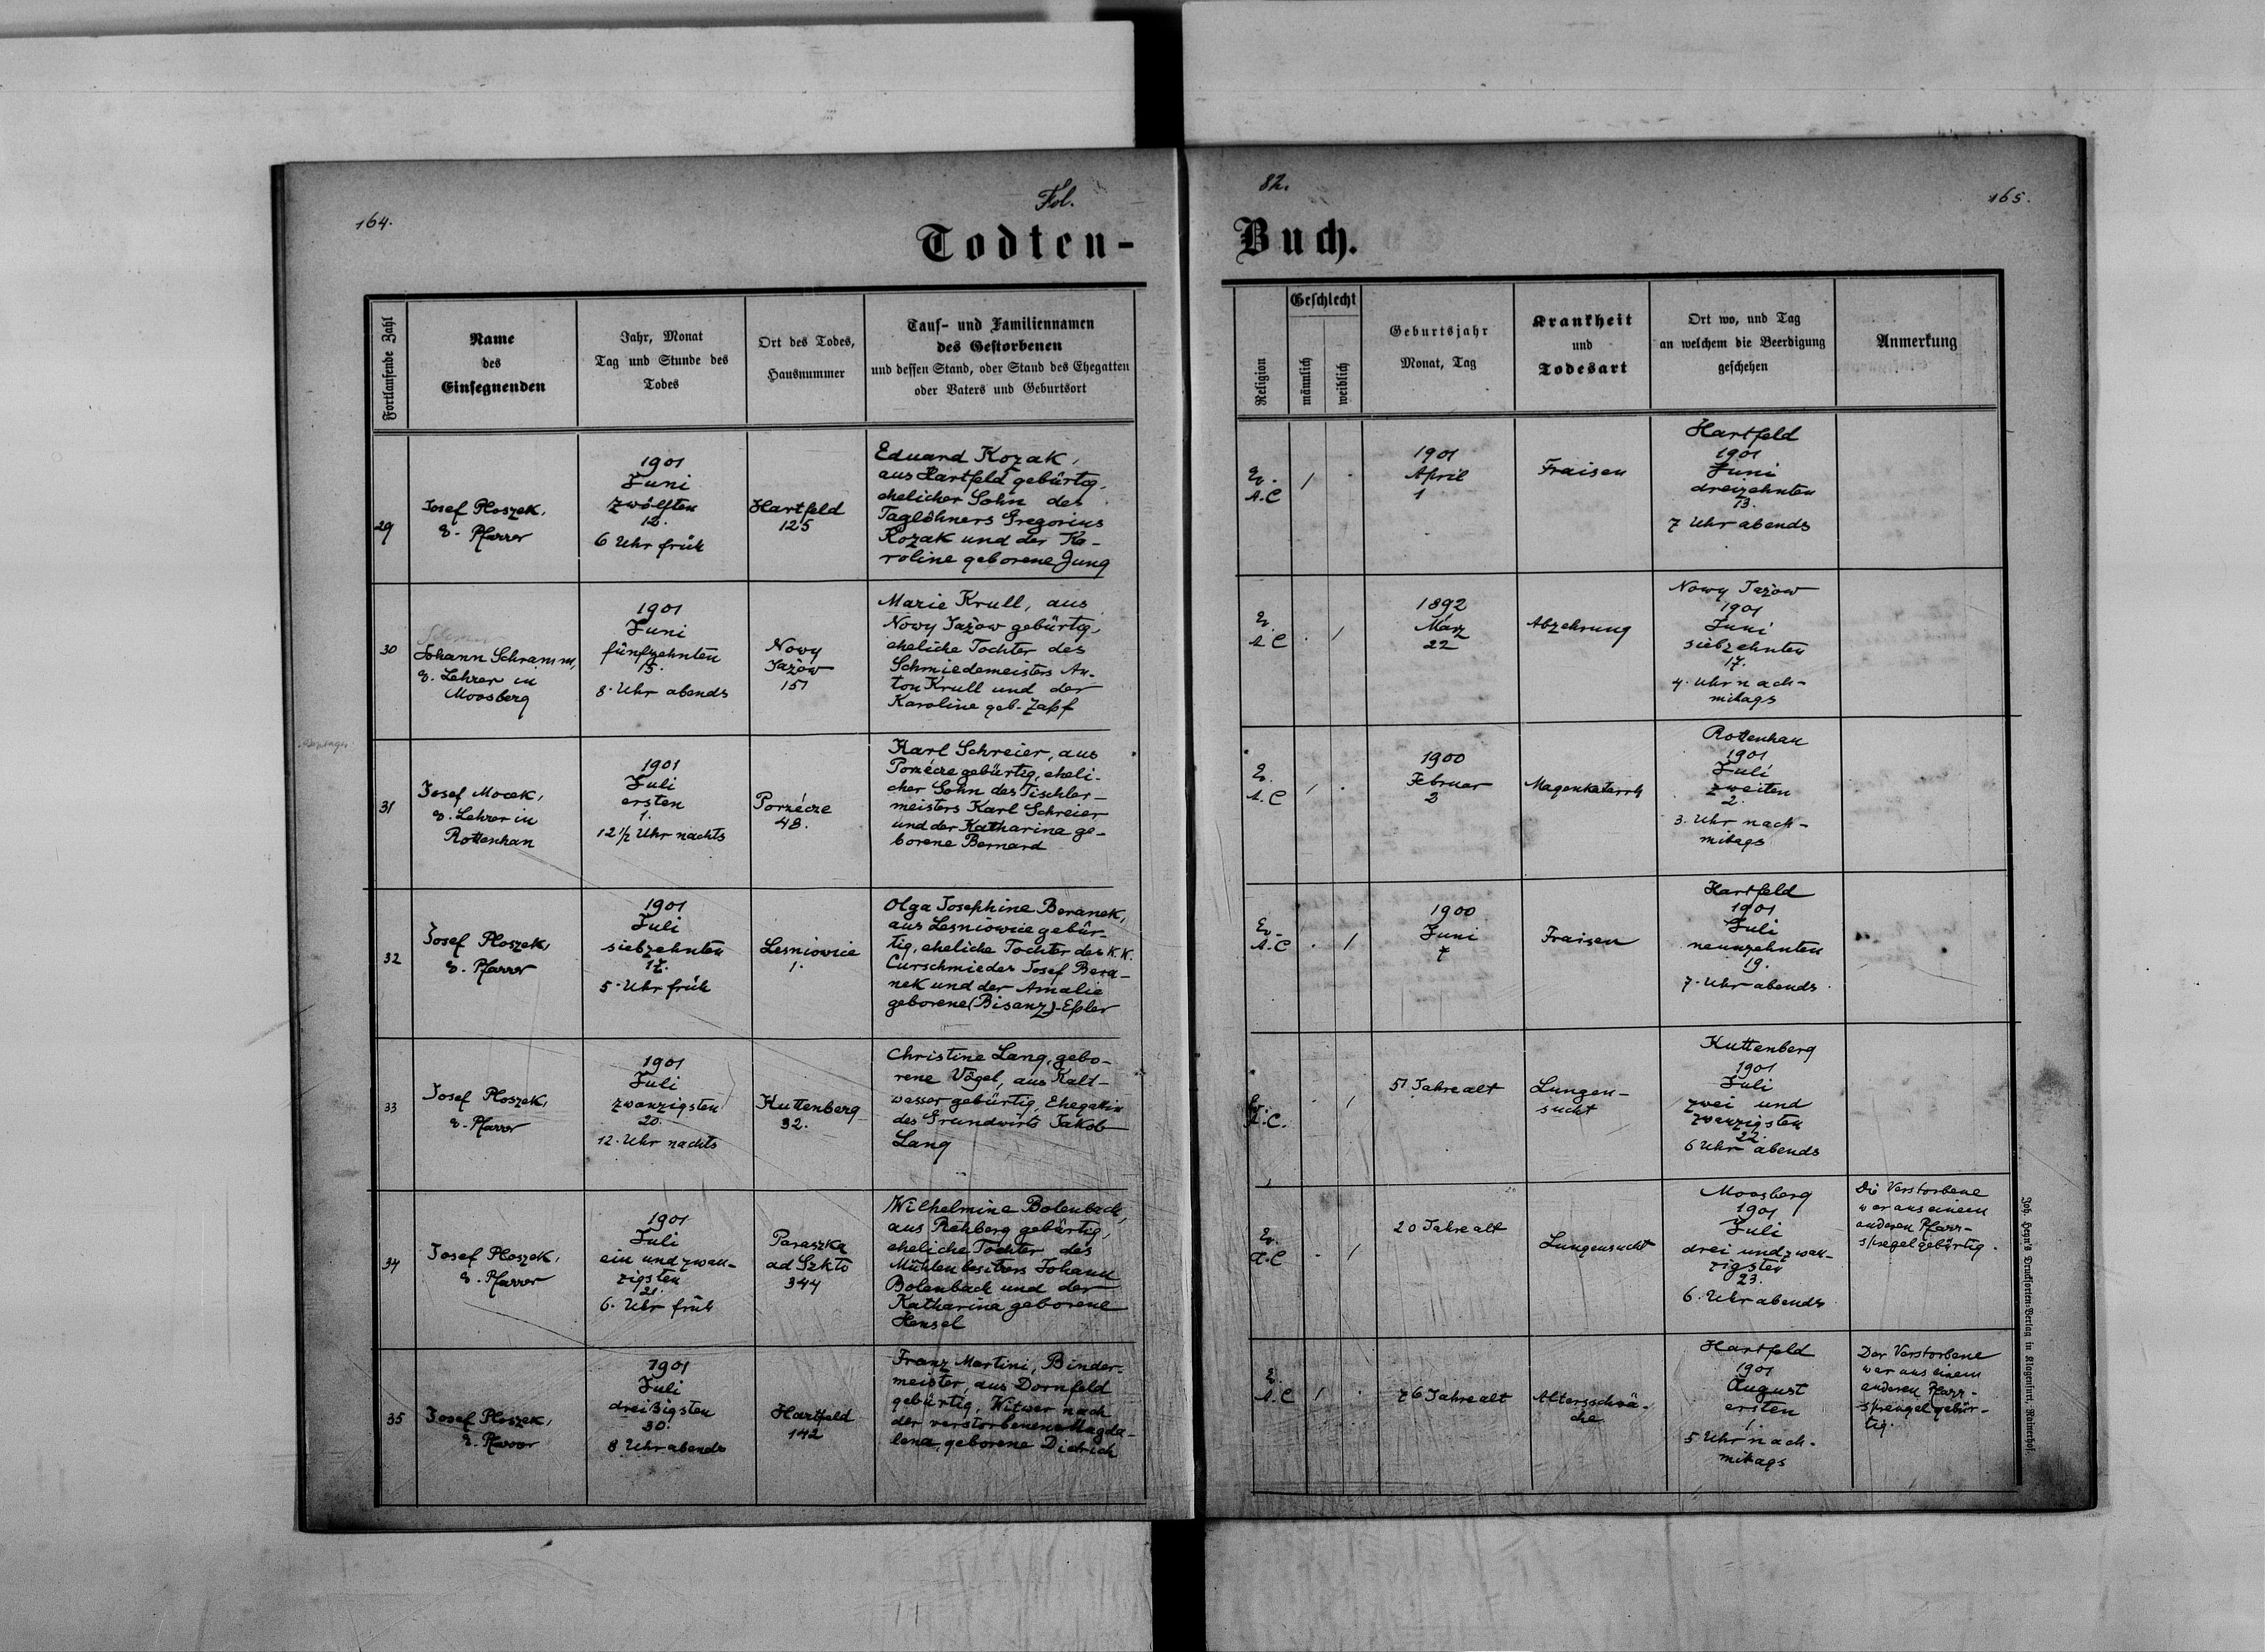 164.
Fol.
82.
165.
Todten-
Buch.
Fortlaufende Zahl
Name
des
Einsegnenden
Jahr, Monat
Tag und Stunde des
Todes
Ort des Todes,
Hausnummer
Tauf- und Familiennamen
des Gestorbenen
und dessen Stand, oder Stand des Ehegatten
oder Vaters und Geburtsort
Religion
Geschlecht
männlich
weiblich
Geburtsjahr
Monat, Tag
Krankheit
und
Todesart
Ort wo, und Tag
an welchem die Beerdigung
geschehen
Anmerkung
29
Josef Ploszek,
ev. Pfarrer
1901
Juni
zwölften
12.
6 Uhr früh
Hartfeld
125
Eduard Kozak,
aus Hartfeld gebürtig,
ehelicher Sohn des
Taglöhners Gregorius
Kozak und der Ka-
roline geborene Jung
Ev.
A.C
1
1901
April
1
Fraisen
Hartfeld
1901
Juni
dreizehnten
13.
7 Uhr abends
30
Johann Schramm,
ev. Lehrer in
Moosberg
1901
Juni
fünfzehnten
15.
8. Uhr abends
Nowy
Jazów
151
Marie Krull, aus
Nowy Jazów gebürtig,
eheliche Tochter des
Schmiedemeisters An-
ton Krull und der
Karoline geb. Zapf
Ev.
A.C
1
1892
März
22
Abzehrung
Nowy Jazów
1901
Juni
siebzehnten
17.
4. Uhr nach-
mitags
31
Josef Mocek,
ev. Lehrer in
Rottenhan
1901
Juli
ersten
1.
12 1/2 Uhr nachts
Porzécze
48.
Karl Schreier, aus
Porzécze gebürtig, eheli-
cher Sohn des Tischler-
meisters Karl Schreier
und der Katharina ge-
borene Bernard
Ev.
A.C
1
1900
Februar
2
Magenkatarrh
Rottenhan
1901
Juli
zweiten
2.
3. Uhr nach-
mitags
32
Josef Ploszek,
ev. Pfarrer
1901
Juli
siebzehnten
17.
5. Uhr früh
Lesniowice
1.
Olga Josephine Beranek,
aus Lesniowice gebür-
tig, eheliche Tochter des K.K.
Curschmiedes Josef Bera-
nek und der Amalie
geborene (Bisanz)-Eßler
Ev.
A.C
1
1900
Juni
7
Fraisen
Hartfeld
1901
Juli
neunzehnten
19.
7. Uhr abends
33
Josef Ploszek,
ev. Pfarrer
1901
Juli
zwanzigsten
20.
12. Uhr nachts
Kuttenberg
32.
Christine Lang, gebo-
rene Vögel, aus Kalt-
wasser gebürtig, Ehegatin
des Grundwirts Jakob
Lang
Ev.
A.C.
1
51 Jahre alt
Lungen-
sucht
Kuttenberg
1901
Juli
zwei und
zwanzigsten
22.
6 Uhr abends
34
Josef Ploszek,
ev. Pfarrer
1901
Juli
ein und zwan-
zigsten
21.
6. Uhr früh
Paraszka
ad Szkło
344
Wilhelmine Bolenbach,
aus Rehberg gebürtig,
eheliche Tochter des
Mühlenbesitzers Johann
Bolenbach und der
Katharina geborene
Hensel
Ev.
A.C
1
20 Jahre alt
Lungensucht
Moosberg
1901
Juli
drei und zwan-
zigsten
23.
6. Uhr abends
Die Verstorbene
war aus einem
anderen Pfarr-
sprengel gebürtig.
35
Josef Ploszek,
ev. Pfarrer
1901
Juli
dreißigsten
30.
8 Uhr abends
Hartfeld
142
Franz Martini, Binder-
meister, aus Dornfeld
gebürtig, Witwer nach
der verstorbenen Magda-
lena, geborene Didrich
Ev.
A.C
1
76 Jahre alt
Altersschwä-
che
Hartfeld
1901
August
ersten
1.
5 Uhr nach-
mitags
Der Verstorbene
war aus einem
anderen Pfarr-
sprengel gebür-
tig.
Joh. Heyn's Drucksorten-Verlag in Klagenfurt, Rainerhof.